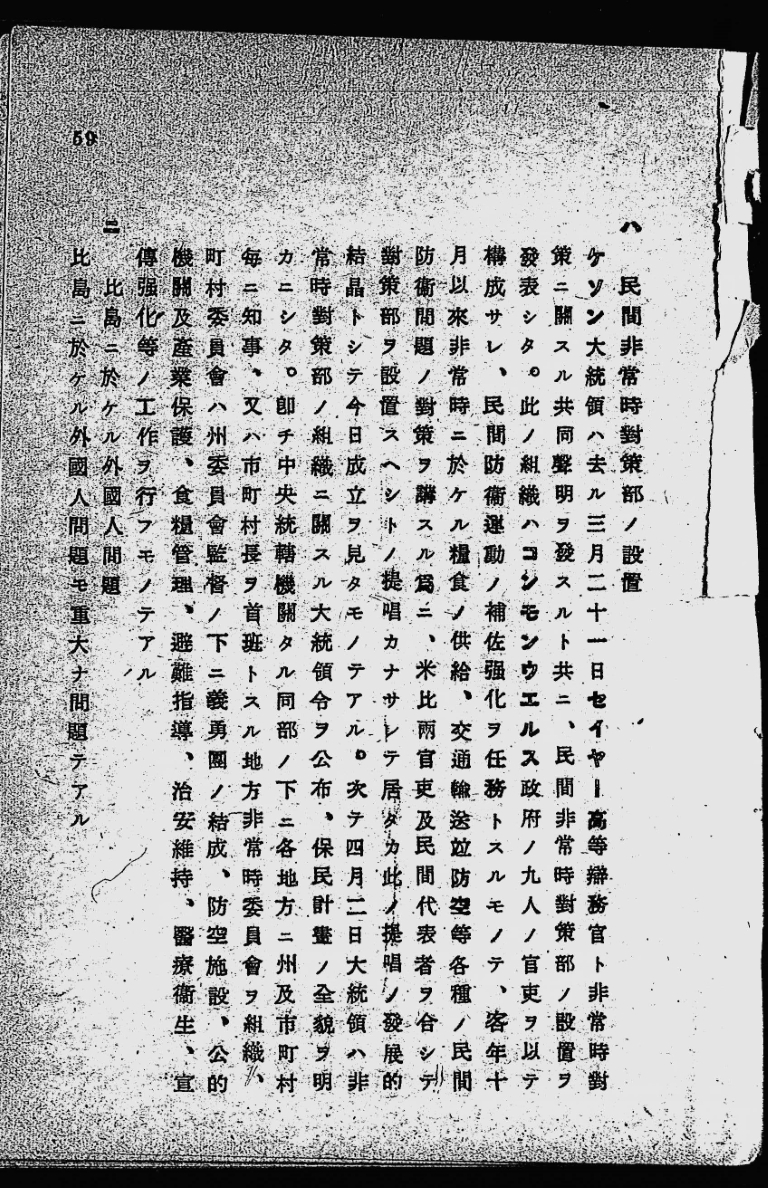 ハ　民間非常時對策部ノ設置
ケソン大統領ハ去ル三月二十一日セイヤー高等辯務官ト非常時對
策ニ關スル共同聲明ヲ發スルト共ニ、民間非常時對策部ノ設置ヲ
發表シタ。此ノ組織ハコンモンウエルス政府ノ九人ノ官吏ヲ以テ
構成サレ、民間防衞運動ノ補佐强化ヲ任務トスルモノテ、客年十
月以來非常時ニ於ケル糧食ノ供給、交通輸送竝防空等各種ノ民間
防衞問題ノ對策ヲ講スル爲ニ、米比兩官吏及民間代表者ヲ合シテ
對策部ヲ設置スヘシトノ提唱カナサレテ居タカ此ノ提唱ノ發展的
結晶トシテ今日成立ヲ見タモノテアル。次テ四月二日大統領ハ非
常時對策部ノ組織ニ關スル大統領令ヲ公布、保民計畫ノ全貌ヲ明
カニシタ。卽チ中央統轄機關タル同部ノ下ニ各地方ニ州及市町村
每ニ知事、又ハ市町村長ヲ首班トスル地方非常時委員會ヲ組織、
町村委員會ハ州委員會監督ノ下ニ義勇團ノ結成、防空施設、公的
機關及產業保護、食糧管理、避難指導、治安維持、醫療衞生、宣
傳强化等ノ工作ヲ行フモノテアル
ニ　比島ニ於ケル外國人問題
比島ニ於ケル外國人問題モ重大ナ問題テアル
59